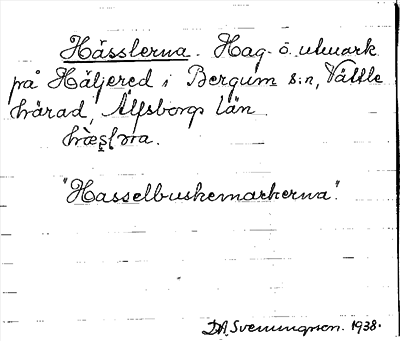 Hässlerna. Hag- o. utmark
på Häljered i Bergum s:n, Vättle
härad, Älfsborgs län.
"Hasselbuskemarkerna".
D.A. Svenningson. 1938.